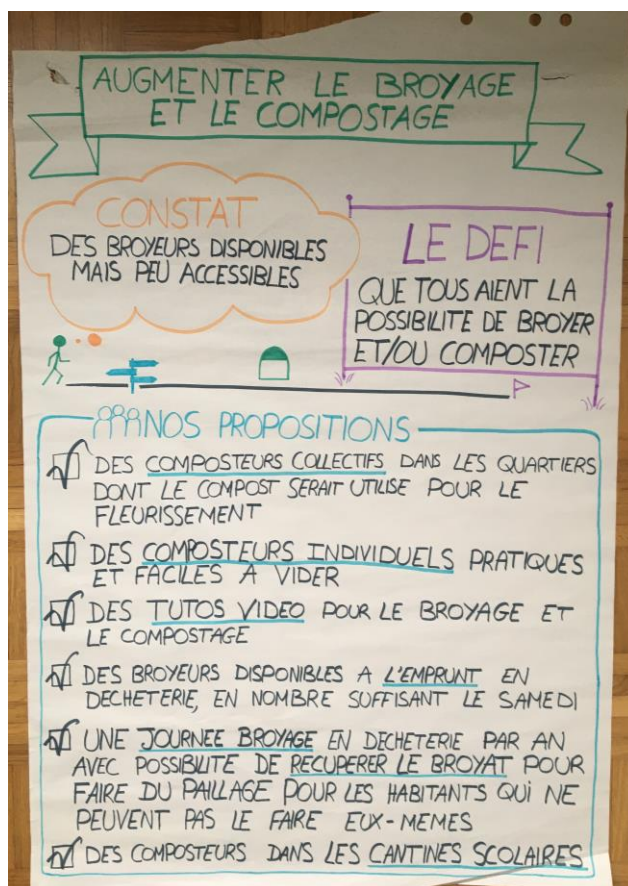 AUGMENTER LE BROYAGE
ET LE COMPOSTAGE
CONSTAT
DES BROYEURS DISPONIBLES
MAIS PEU ACCESSIBLES
LE DEFI
QUE TOUS AIENT LA
POSSIBILITE DE BROYER
ET/OU COMPOSTER
NOS PROPOSITIONS
DES COMPOSTEURS COLLECTIFS DANS LES QUARTIERS
DONT LE COMPOST SERAIT UTILISE POUR LE
FLEURISSEMENT
DES COMPOSTEURS INDIVIDUELS PRATIQUES
ET FACILES A VIDER
DES TUTOS VIDEO POUR LE BROYAGE ET
LE COMPOSTAGE
DES BROYEURS DISPONIBLES A L'EMPRUNT EN
DECHETERIE, EN NOMBRE SUFFISANT LE SAMEDI
UNE JOURNEE BROYAGE EN DECHETERIE PAR AN
AVEC POSSIBILITE DE RECUPERER LE BROYAT POUR
FAIRE DU PAILLAGE POUR LES HABITANTS QUI NE
PEUVENT PAS LE FAIRE EUX-MEMES
DES COMPOSTEURS DANS LES CANTINES SCOLAIRES